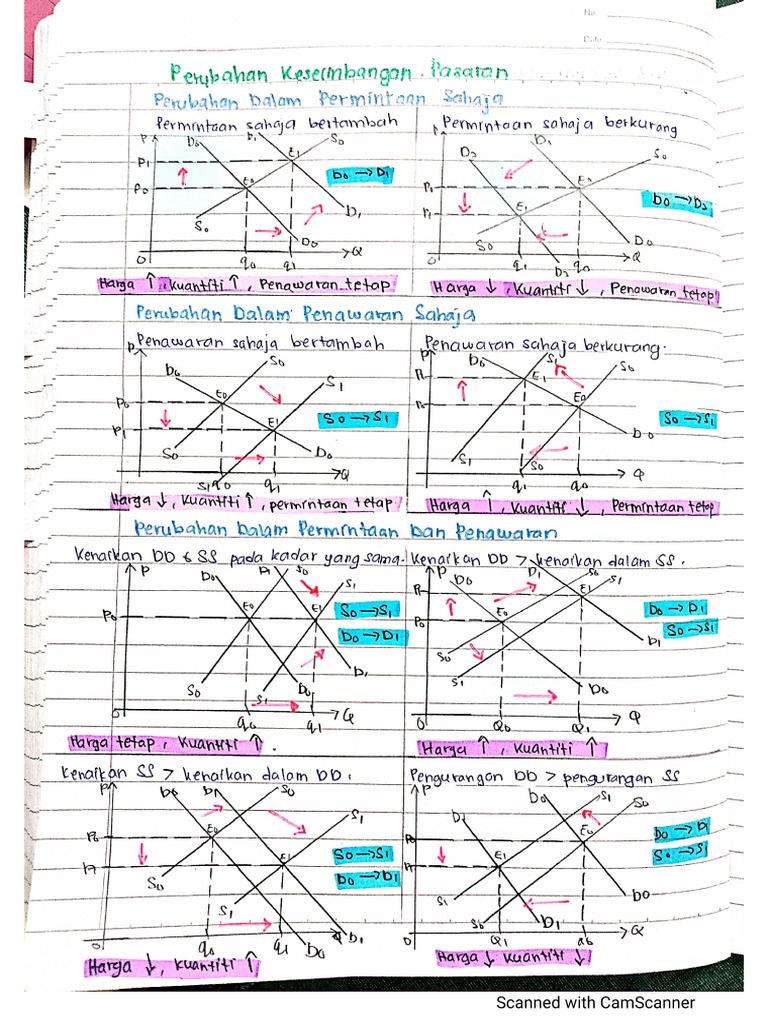 No.
Date
Perubahan Keseimbangan Pasaran
Perubahan Dalam Permintaan Sahaja
Permintaan sahaja bertambah
Permintaan sahaja berkurang
P D0 D1 S0
P1 E1
P0 E0
D0 → D1
S0 D1
D0
0 q0 q1 Q
P D1
D2 S0
P0 E0
P1 E1
D0 → D2
S0 D0
0 q1 D2 q0 Q
Harga ↑, Kuantiti ↑, Penawaran tetap
Harga ↓, Kuantiti ↓, Penawaran tetap
Perubahan Dalam Penawaran Sahaja
Penawaran sahaja bertambah
Penawaran sahaja berkurang.
P D0 S0
S1
P0 E0
P1 E1
S0 → S1
S0 D0
S1 q0 q1 Q
P D0 S1 S0
P1 E1
P0 E0
S0 → S1
D0
S1 S0
q1 q0 Q
Harga ↓, Kuantiti ↑, permintaan tetap
Harga ↑, Kuantiti ↓, Permintaan tetap
Perubahan Dalam Permintaan Dan Penawaran
Kenaikan DD & SS pada kadar yang sama.
Kenaikan DD > kenaikan dalam SS.
P D0 D1 S0 S1
P0 E0 E1
S0 → S1
D0 → D1
S0 S1 D0 D1
0 q0 q1 Q
P D0 D1 S0 S1
P1 E1
P0 E0
D0 → D1
S0 → S1
D1
S0
S1 D0
0 Q0 Q1 Q
Harga tetap, Kuantiti ↑.
Harga ↑, Kuantiti ↑
Kenaikan SS > kenaikan dalam DD.
Pengurangan DD > pengurangan SS
P D0 D1 S0
S1
P0 E0
P1 E1
S0 → S1
D0 → D1
S0
S1
0 q0 q1 D0 Q D1
P D0 S1 S0
D1
P0 E0
P1 E1
D0 → D1
S0 → S1
S1 D0
S0 D1
0 Q1 Q0 Q
Harga ↓, Kuantiti ↑
Harga ↓ Kuantiti ↓
Scanned with CamScanner